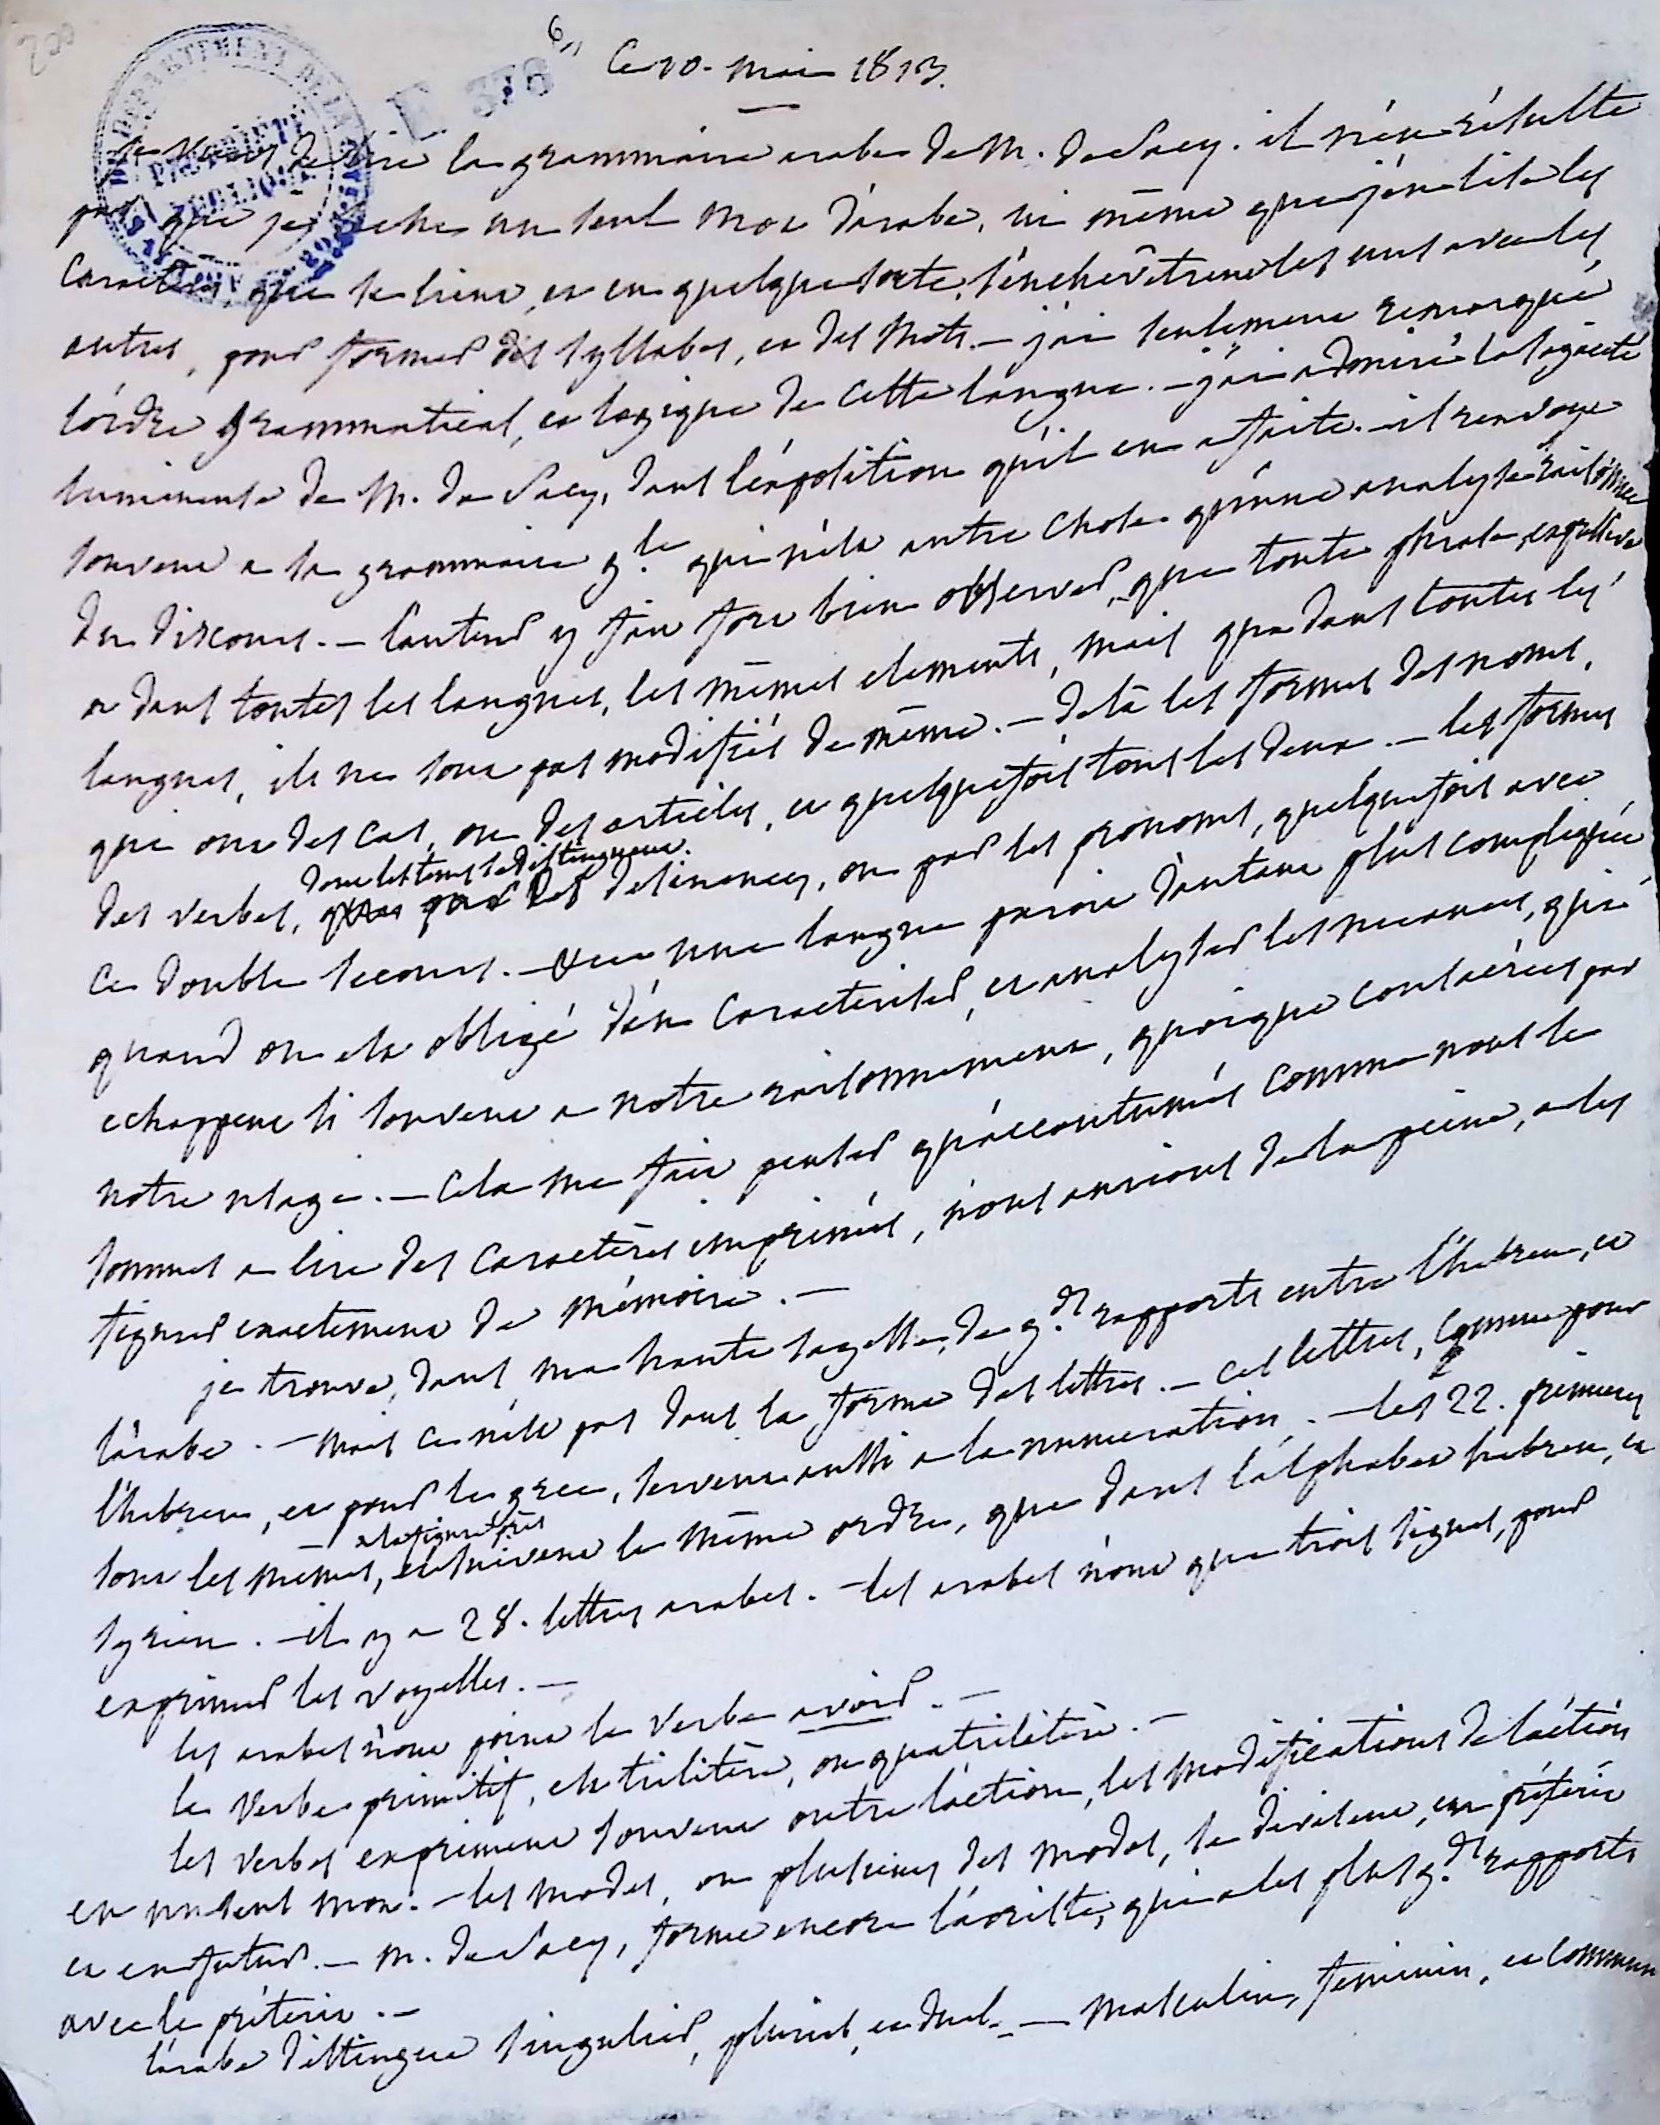 200
6,,
Ce 10. mai 1813.
E 378
DÉPARTEMENT DE LA
PROPRIÉTÉ
PUBLIQUE
je viens de lire la grammaire arabe de M. de Sacy. il n'en résulte
pas que je sache un seul mot d'arabe, ni même que j'en lise les
caractères qui se lient, et en quelque sorte, s'enchevêtrent les uns avec les
autres, pour former des syllabes, et des mots. — j'ai seulement remarqué
l'ordre grammatical, et logique de cette langue. — j'ai admiré la sagacité
lumineuse de M. de Sacy, dans l'exposition qu'il en a faite. — il renvoye
souvent a la grammaire g.le qui n'est autre chose qu'une analyse raisonnée
du discours. — l'auteur y fait fort bien observer, que toute phrase, expressive
a dans toutes les langues, les mêmes elements, mais que dans toutes les
langues, ils ne sont pas modifiés de même. — de là les formes des noms,
qui ont des cas, ou des articles, et quelquefois tous les deux. — les formes
des verbes, dont les tems se distinguent par les desinences, ou par les pronoms, quelquefois avec
ce double secours. — une langue paroit d'autant plus compliquée
quand on est obligé d'en caracteriser, et analyser les nuances, qui
echappent si souvent a notre raisonnement, quoique consacrées par
notre usage. — cela me fait penser qu'accoutumés comme nous le
sommes a lire des caractères imprimés, nous aurions de la peine, a les
figurer exactement de mémoire. —
je trouve, dans ma haute sagesse, de g.ds rapports entre l'hebreu, et
l'arabe. — mais ce n'est pas dans la forme des lettres. — ces lettres, comme pour
l'hebreu, et pour le grec, servent aussi a la numeration. — les 22. premieres
sont les mêmes, a la figure près et suivent le même ordre, que dans l'alphabet hebreu, et
syrien. — il y a 28. lettres arabes. — les arabes n'ont que trois signes, pour
exprimer les voyelles. —
les arabes n'ont point le verbe avoir. —
le verbe primitif, est trilitère, ou quatrilitère. —
les verbes expriment souvent outre l'action, les modifications de l'action
en un seul mot. — les modes, ou plusieurs des modes, se divisent, en prétérit
et en futur. — M. de Sacy, forme encore l'aoriste, qui a les plus g.ds rapports
avec le préterit. —
l'arabe distingue singulier, pluriel, et duel. — masculin, feminin, et commun